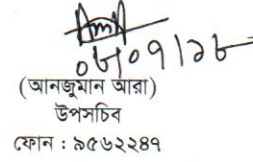 ০৮/০৭/১৮
(আনজুমান আরা)
উপসচিব
ফোন : ৯৫৬২২৪৭